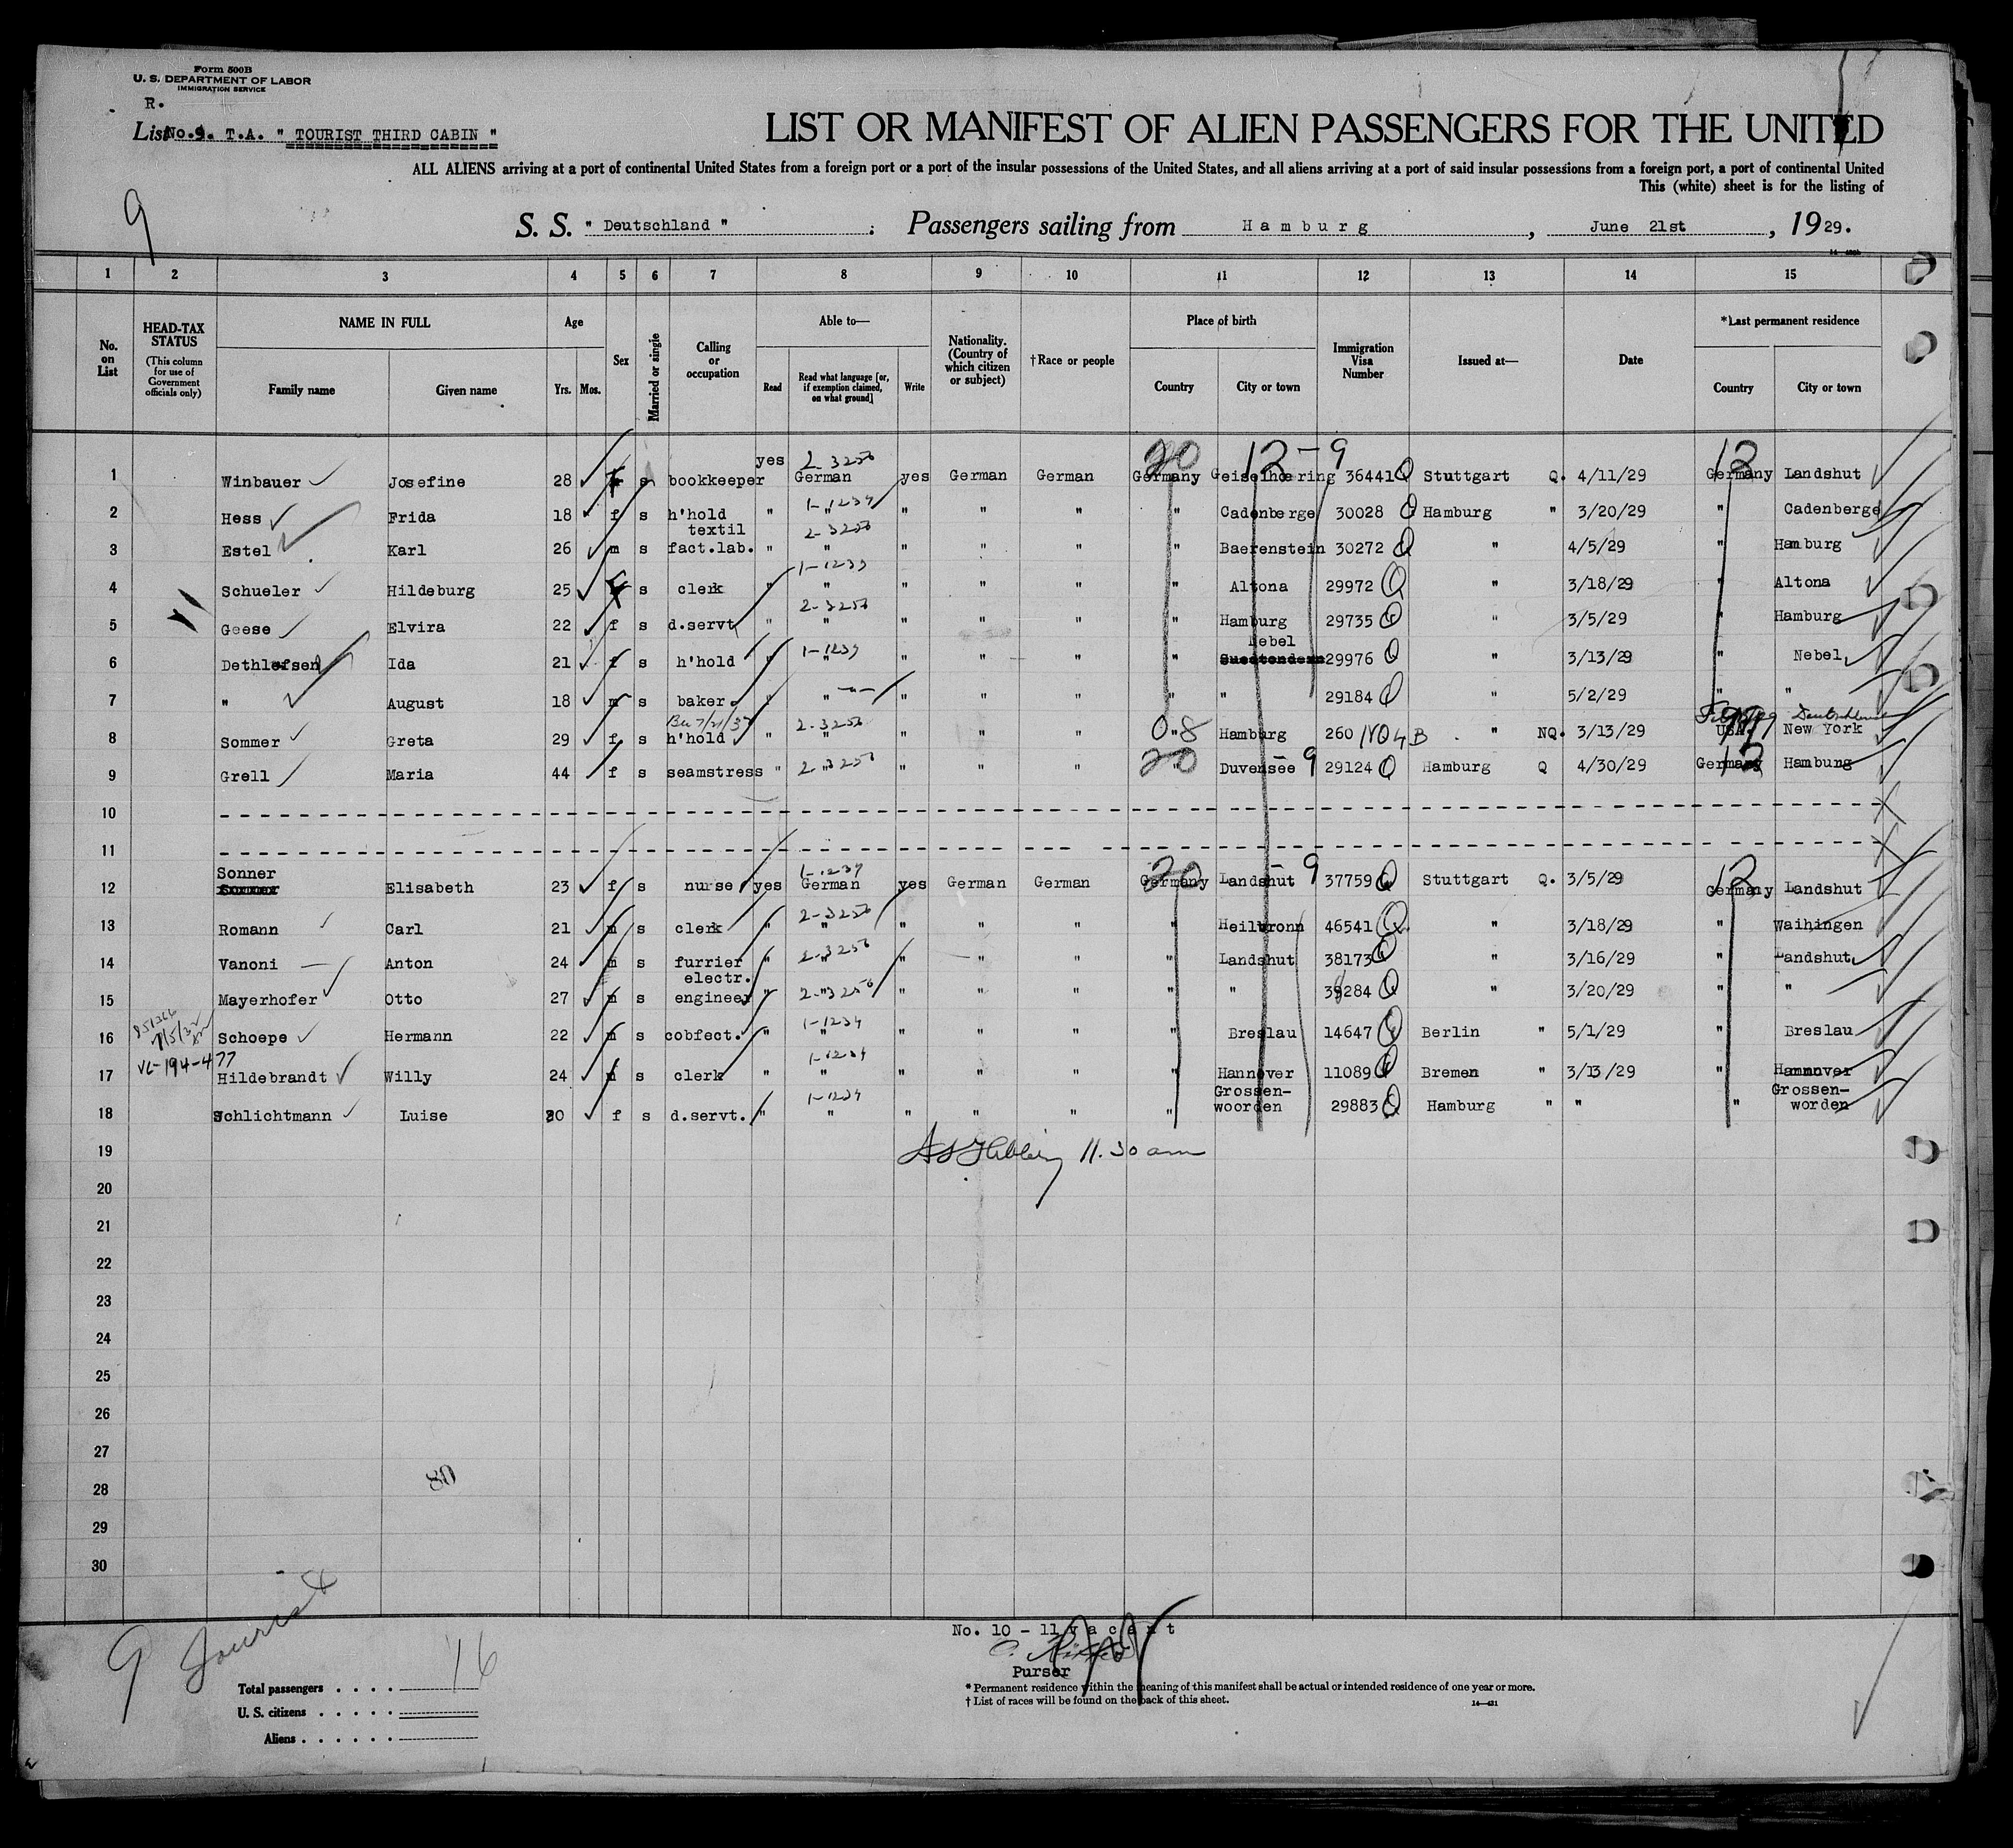 Form 500B
U. S. DEPARTMENT OF LABOR
IMMIGRATION SERVICE
R.
List No. 9. T.A. " TOURIST THIRD CABIN "
LIST OR MANIFEST OF ALIEN PASSENGERS FOR THE UNITED
ALL ALIENS arriving at a port of continental United States from a foreign port or a port of the insular possessions of the United States, and all aliens arriving at a port of said insular possessions from a foreign port, a port of continental United
This (white) sheet is for the listing of
9
S. S. " Deutschland " ; Passengers sailing from Hamburg , June 21st , 1929.
1 2 3 4 5 6 7 8 9 10 11 12 13 14 15
No. on List
HEAD-TAX STATUS (This column for use of Government officials only)
NAME IN FULL Family name Given name
Age Yrs. Mos.
Sex
Married or single
Calling or occupation
Able to— Read Read what language [or, if exemption claimed, on what ground] Write
Nationality. (Country of which citizen or subject)
†Race or people
Place of birth Country City or town
Immigration Visa Number
Issued at—
Date
*Last permanent residence Country City or town
20 12 - 9 12
1 Winbauer Josefine 28 f s bookkeeper yes 2-3256 German yes German German Germany Geiselhoering 36441 Q Stuttgart Q. 4/11/29 Germany Landshut
2 Hess Frida 18 f s h'hold " 1-1234 " " " " " Cadenberge 30028 Q Hamburg " 3/20/29 " Cadenberge
3 Estel Karl 26 m s textil fact.lab. " 2-3256 " " " " " Baerenstein 30272 Q " 4/5/29 " Hamburg
4 Schueler Hildeburg 25 f s clerk " 1-1234 " " " " " Altona 29972 Q " 3/18/29 " Altona
5 Geese Elvira 22 f s d.servt. " 2-3256 " " " " " Hamburg 29735 Q " 3/5/29 " Hamburg
6 Dethlefsen Ida 21 f s h'hold " 1-1234 " " " " " Nebel 29976 Q " 3/13/29 " Nebel
7 " August 18 m s baker " " " " " " " 29184 Q " 5/2/29 " "
8 Sommer Greta 29 f s h'hold " 2-3256 " " " " 08 " Hamburg 260 NQ 4 B " NQ. 3/13/29 USA 99 New York
9 Grell Maria 44 f s seamstress " 2-3256 " " " " 20 " Duvensee 9 29124 Q Hamburg Q 4/30/29 Germany 12 Hamburg
10
11
20 9 12
12 Sonner Elisabeth 23 f s nurse yes 1-1234 German yes German German Germany Landshut 37759 Q Stuttgart Q. 3/5/29 Germany Landshut
13 Romann Carl 21 m s clerk " 2-3256 " " " " " Heilbronn 46541 Q " 3/18/29 " Waihingen
14 Vanoni Anton 24 m s furrier " 2-3256 " " " " " Landshut 38173 Q " 3/16/29 " Landshut
15 Mayerhofer Otto 27 m s electr. engineer " 2-3256 " " " " " " 39284 Q " 3/20/29 " "
16 Schoepe Hermann 22 m s cobfect. " 1-1234 " " " " " Breslau 14647 Q Berlin " 5/1/29 " Breslau
VL-194-477
17 Hildebrandt Willy 24 m s clerk " 1-1234 " " " " " Hannover 11089 Q Bremen " 3/13/29 " Hannover
18 Schlichtmann Luise 20 f s d.servt. " 1-1234 " " " " " Grossen-woorden 29883 Q Hamburg " " " Grossen-worden
19 11.30 am
20
21
22
23
24
25
26
27
28
80
29
30
9 Tourist
16
No. 10 - 11 vacant
Purser
Total passengers . . . .
U. S. citizens . . . . .
Aliens . . . . . .
* Permanent residence within the meaning of this manifest shall be actual or intended residence of one year or more.
† List of races will be found on the back of this sheet.
14—431